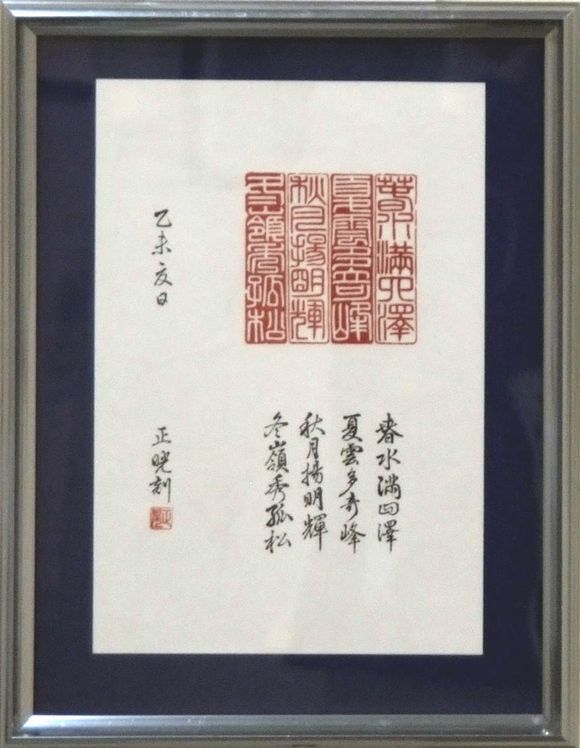 春水満四澤
夏雲多奇峰
秋月揚明輝
冬嶺秀孤松
春水満四澤
夏雲多奇峰
秋月揚明輝
冬嶺秀孤松
乙未夏日
正暁刻